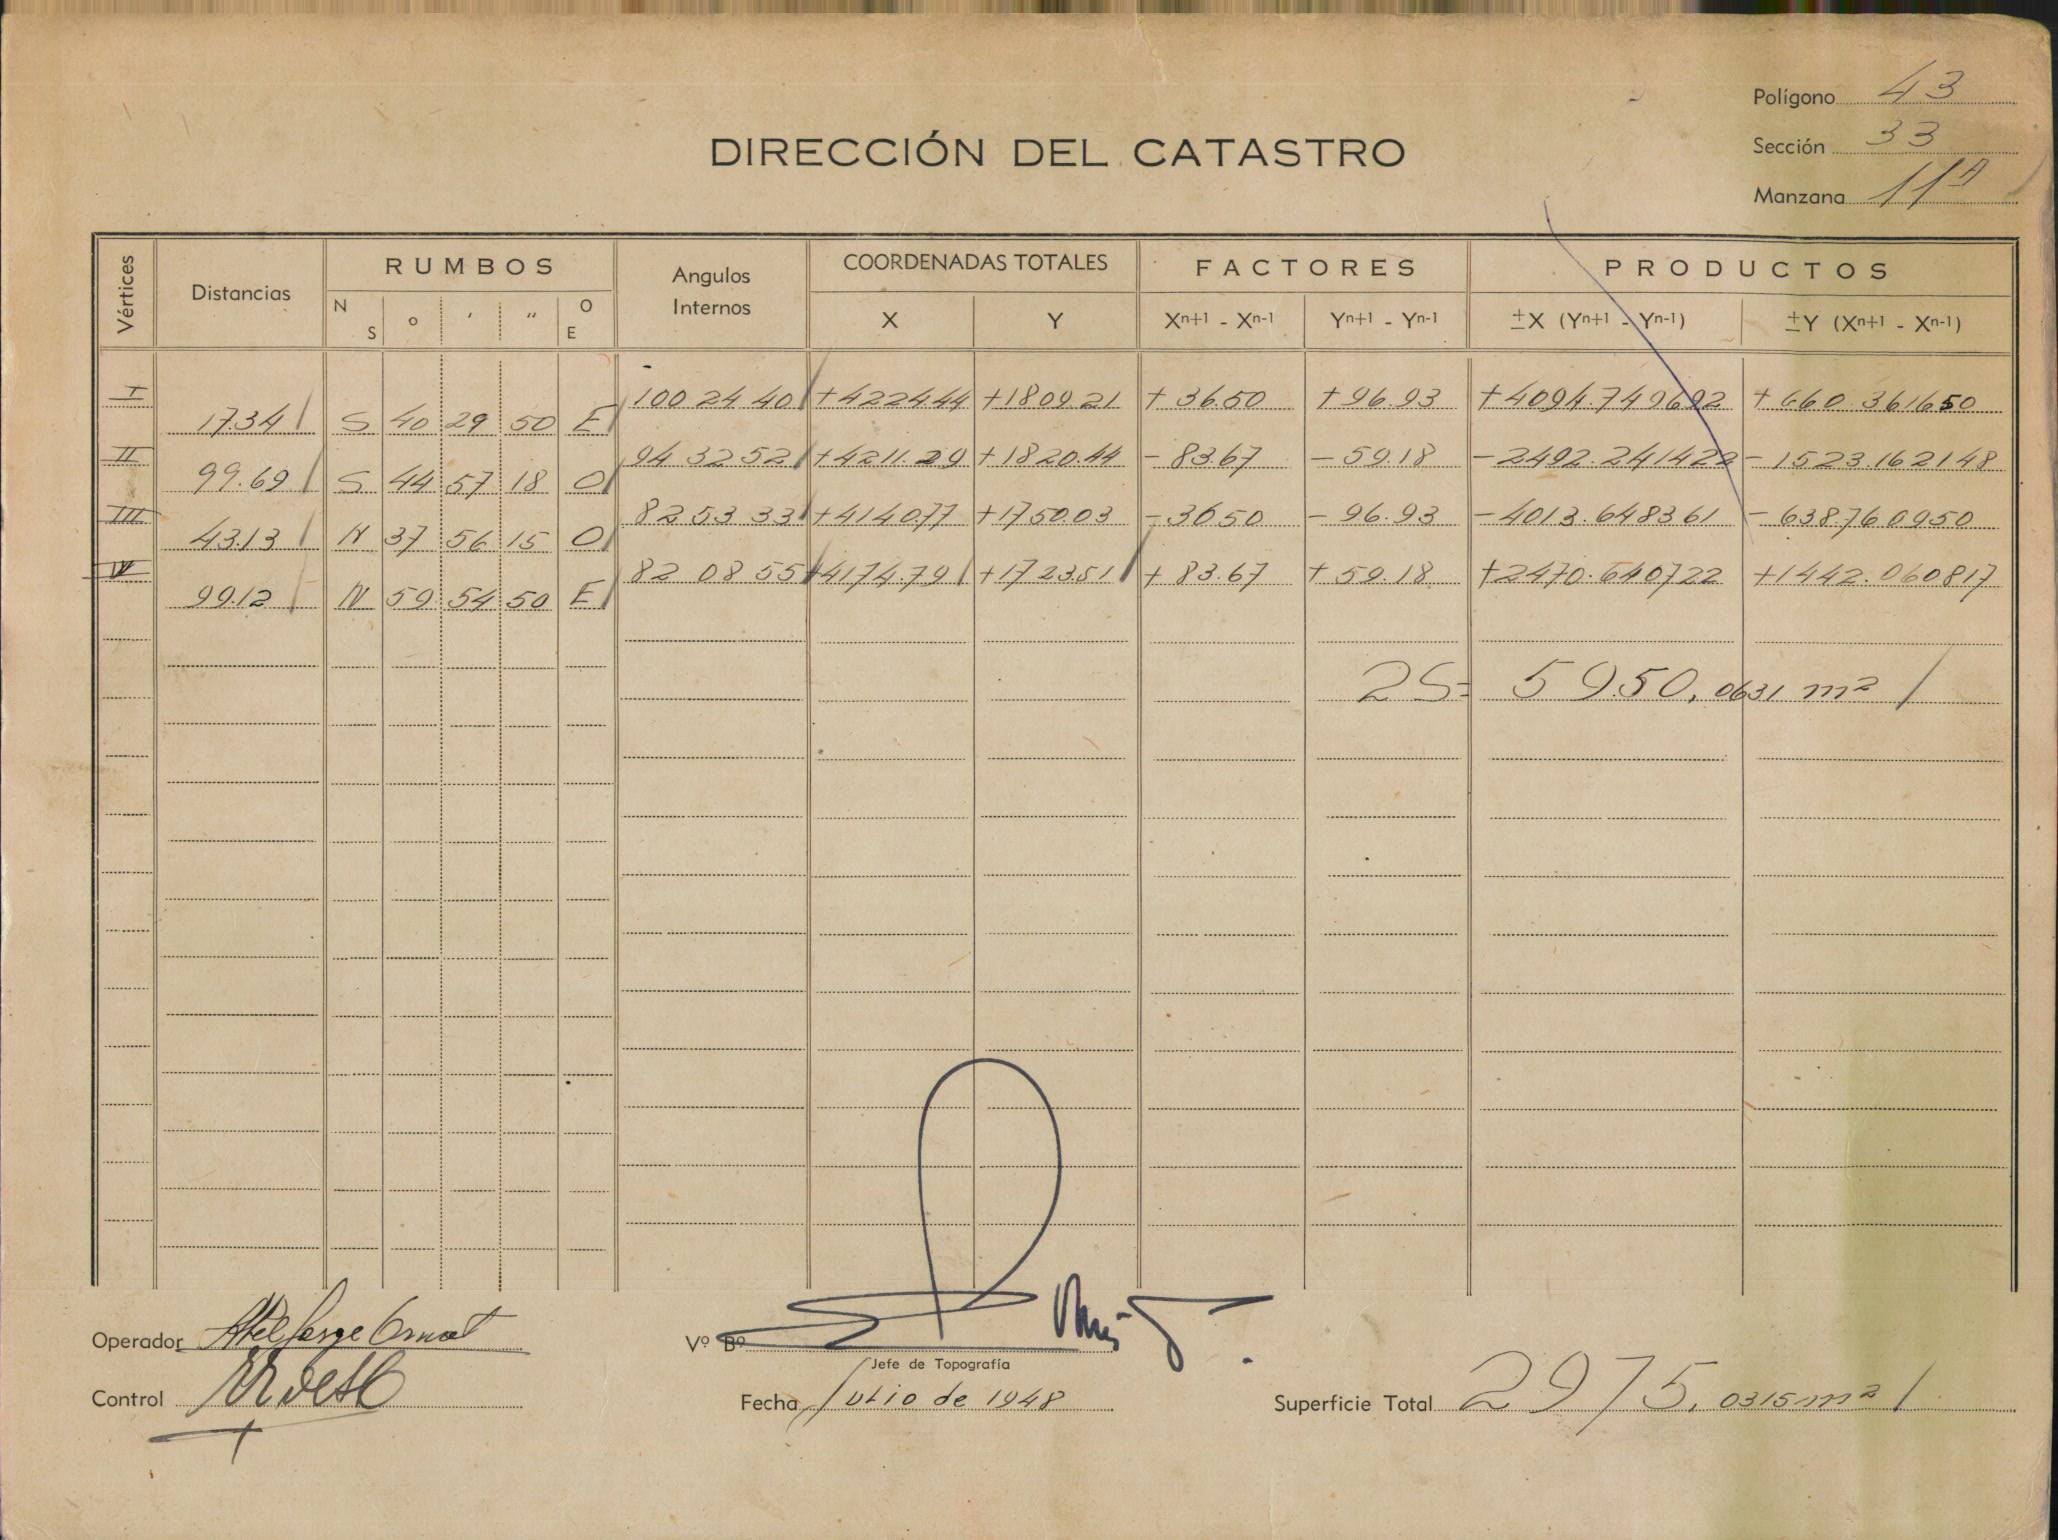 Polígono 43
DIRECCIÓN DEL CATASTRO
Sección 33
Manzana 11A
Vértices Distancias RUMBOS Angulos Internos COORDENADAS TOTALES FACTORES PRODUCTOS
N S o ' " O E X Y Xn+1 - Xn-1 Yn+1 - Yn-1 ±X (Yn+1 - Yn-1) ±Y (Xn+1 - Xn-1)
I 100 24 40 +4224.44 +1809.21 + 36.50 + 96.93 +4094.749692 + 660.361650
17.34 S 40 29 50 E
II 94 32 52 +4211.29 +1820.44 - 83.67 - 59.18 -2492.241422 -1523.162148
99.69 S 44 57 18 O
III 82 53 33 +4140.77 +1750.03 - 36.50 - 96.93 -4013.648361 -638.760950
43.13 N 37 56 15 O
IV 82 08 55 +4174.79 +1723.51 + 83.67 + 59.18 +2470.640722 +1442.060817
99.12 N 59 54 50 E
2S= 5950,0631 m2
Operador
Vº Bº
Jefe de Topografía
Control
Fecha Julio de 1948
Superficie Total 2975,0315 m2